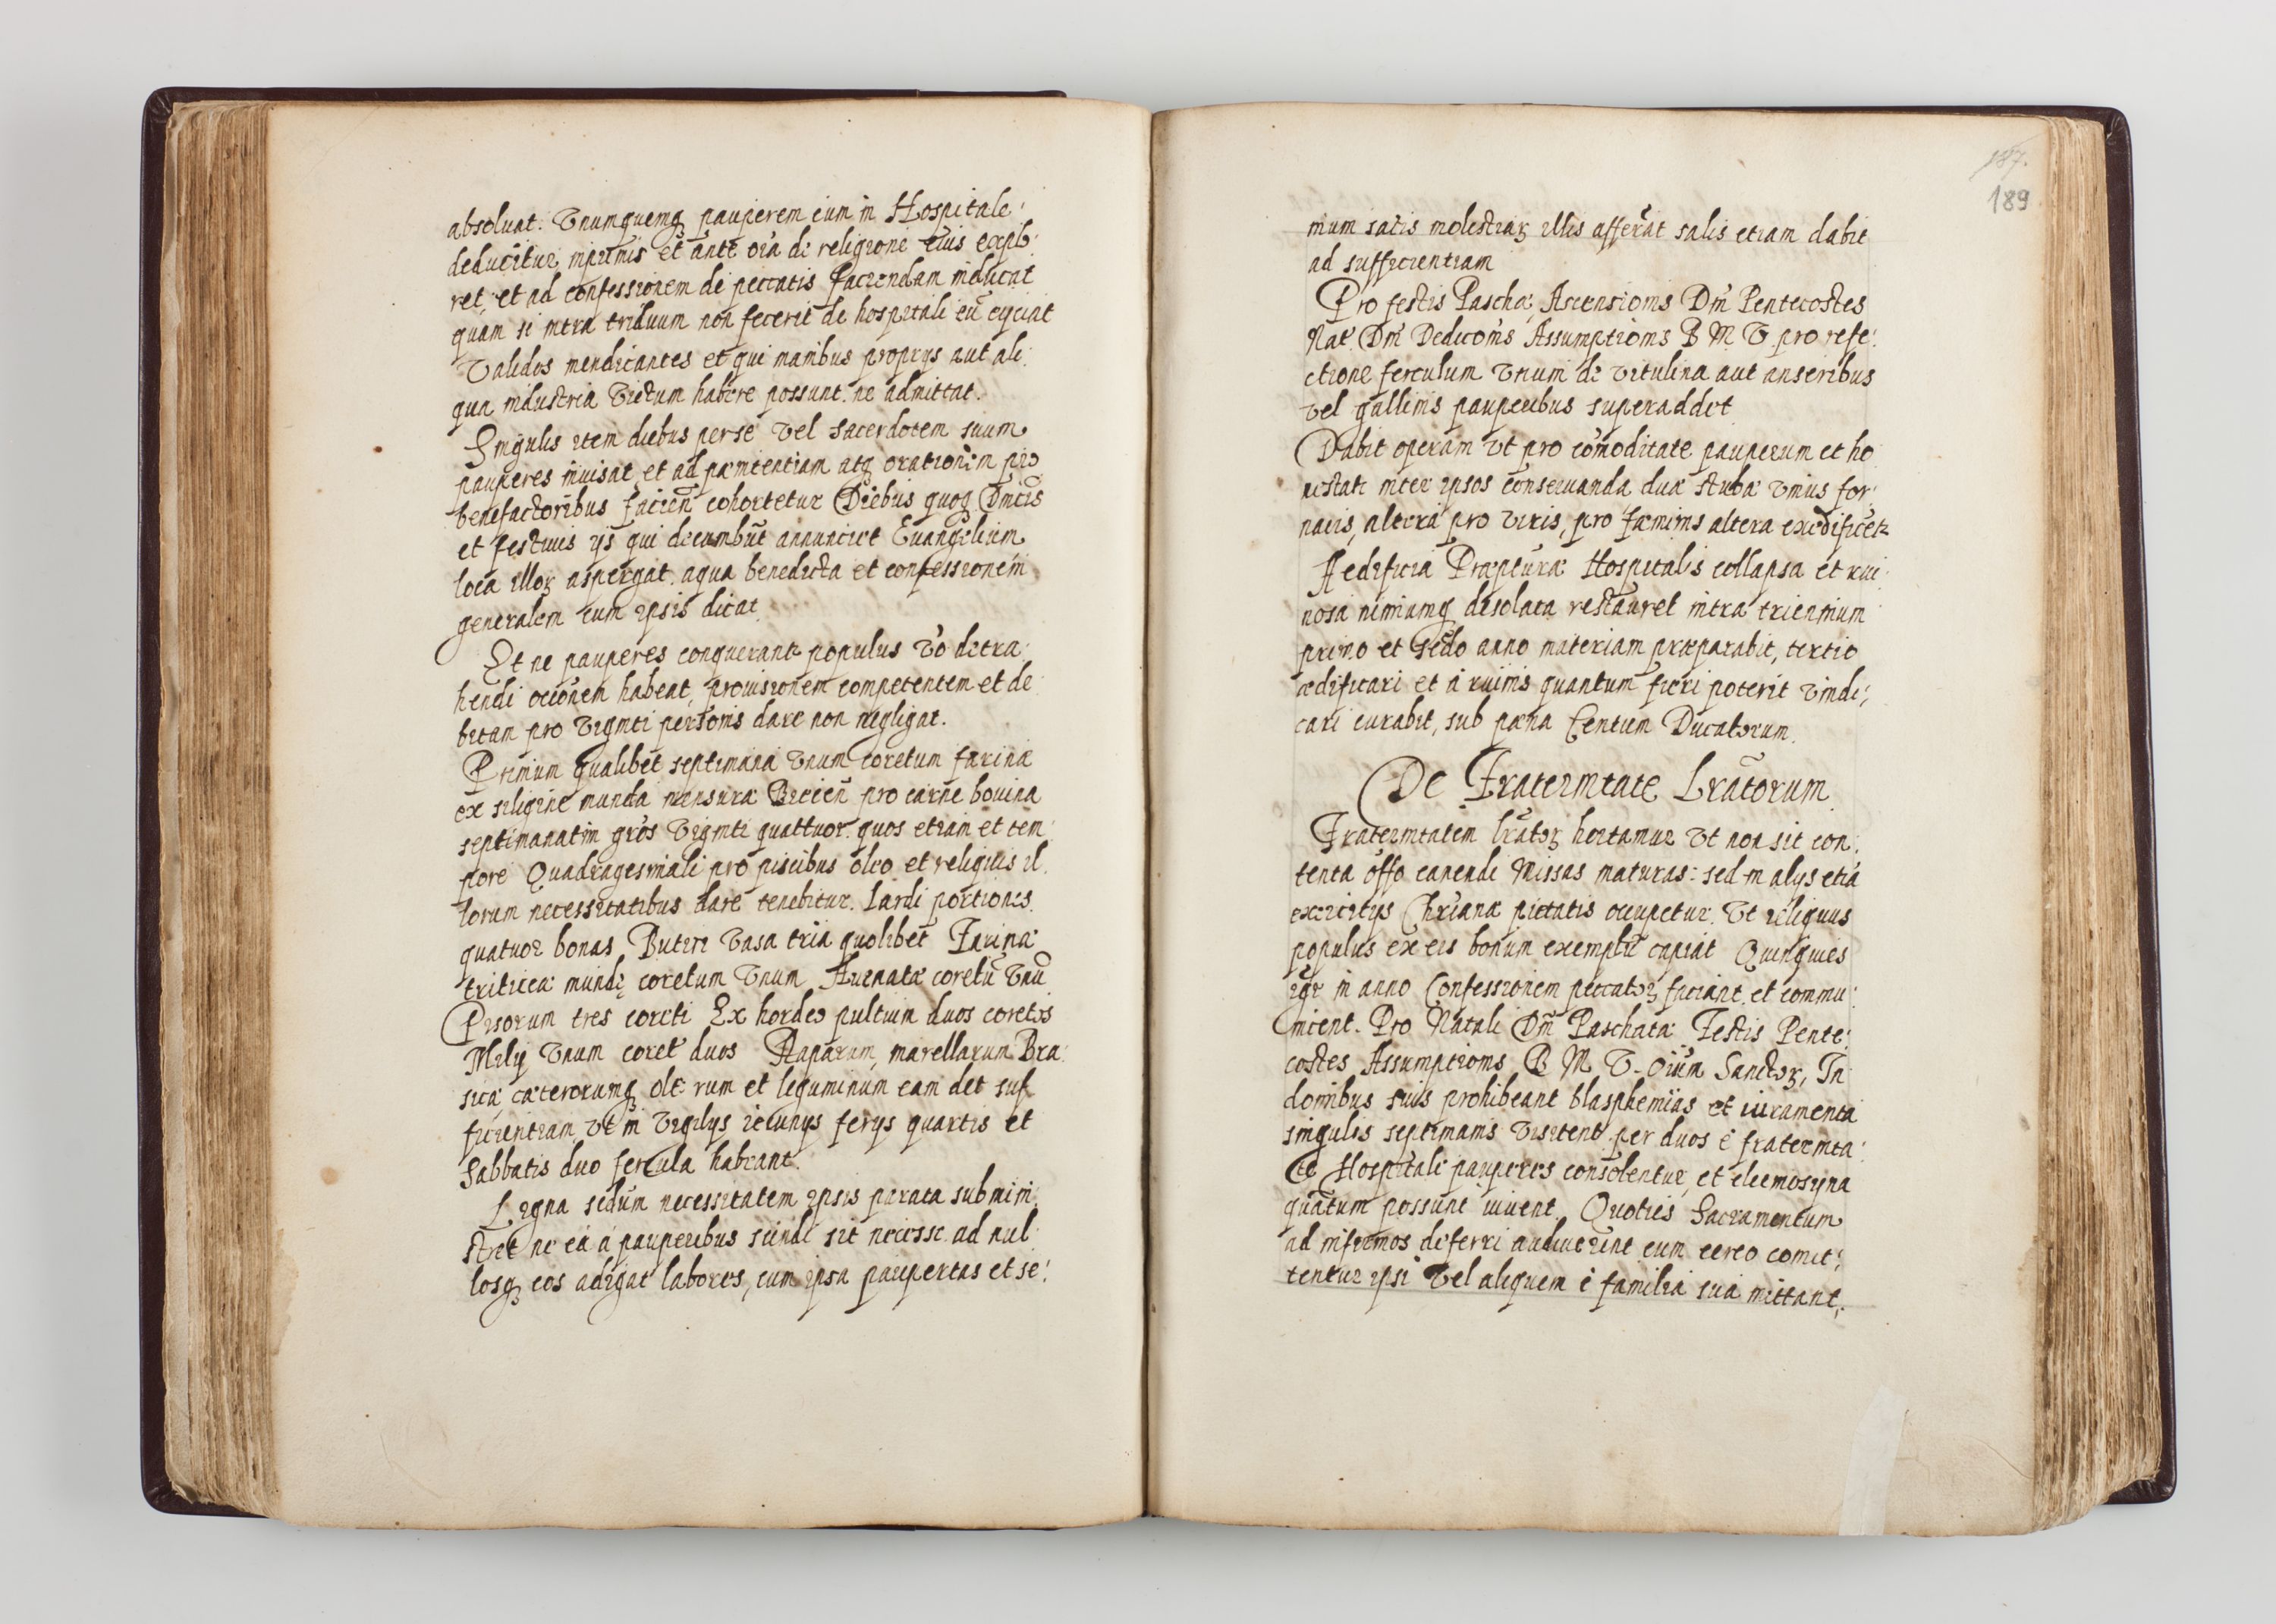 absoluat. Vnumquemq₃ pauperem cum in Hospitale:
deducitur inprimis et ante oĩa de religione eius explo:
ret, et ad confessionem de peccatis faciendam inducat
quam si intra triduum non fecerit de hospitali eũ eijciat
Validos mendicantes et qui manibus proprijs aut ali:
qua industria victum habere possunt. ne admittat.
Singulis item diebus per se vel Sacerdotem suum
pauperes inuisat, et ad pænitentiam atq₃ orationem pro
benefactoribus facien̄ cohortetur Diebus quoq₃ Dnĩcis
et festiuis ijs qui decumbũt annunciet Euangelium
loca illoꝝ aspergat. aqua benedicta et confessionem
generalem cum ipsis dicat.
Et ne pauperes conquerantr populus vo detra:
hendi occõnem habeat, prouisionem competentem et de:
bitam pro viginti personis dare non negligat.
Primum qualibet septimana vnum coretum farinæ
ex siligine munda mensuræ Biecien̄ pro carne bouina
septimanatim gros viginti quattuor. quos etiam et tem:
pore Quadragesimali pro piscibus oleo et reliquis il:
lorum necessitatibus dare tenebitur. Lardi portiones.
quatuor bonas Butiri vasa tria quolibet Farinæ
triticeæ mundę coretum vnum Auenatæ coretũ vnũ
Pisorum tres coreti Ex hordeo pultium duos coretos
Milij vnum coret duos Raparum, marellarum Bra:
sicæ, cæterorumq₃ ole: rum et leguminum eam det suf:
ficientiam vt in vigilijs ieiunijs ferijs quartis et
Sabbatis duo fercula habeant.
Ligna secũdum necessitatem ipsis parata submini:
stret ne ea á pauperibus scindi sit necesse. ad nul:
losq₃ eos adigat labores, cum ipsa paupertas et se:
nium satis molestiaꝝ illis afferat salis etiam dabit
ad sufficientiam
Pro festis Paschæ, Ascensionis Dn̄i Pentecostes
Nat. Dn̄i Dedicõnis Assumptionis B M. V. pro refe:
ctione ferculum vnum de vitulina aut anseribus
vel gallinis pauperibus superaddet
Dabit operam vt pro cõmoditate pauperum et ho:
nestate inter ipsos conseruanda duæ stubæ vnius for:
nacis, altera pro viris, pro fæminis altera exædificetr
Aedificia Præpturæ Hospitalis collapsa et rui:
nosa nimiumq₃ desolata restauret intra triennium
primo et sẽdo anno materiam præparabit, tertio
ædificari et á ruinis quantum fieri poterit vindi:
cari curabit, sub pæna Centum Ducatorum.
De Fraternitate Lrãtorum.
Fraternitatem lrãtoꝝ hortamur vt non sit con:
tenta offõ canendi Missas maturas: sed in alijs etiã
exercitijs Chrĩanæ pietatis occupetur. Vt reliquus
populus ex eis bonum exemplũ capiat Quinquies
igr̃ in anno Confessionem peccatoꝝ faciant et commu:
nicent. Pro Natali Dn̄i Paschatæ Festis Pente:
costes Assumptionis B M V. Oĩum Sanctoꝝ, In
domibus suis prohibeant blasphemias et iuramenta
singulis septimanis visitent per duos é fraternita:
te Hospitale pauperes consolentur, et eleemosyna
quãtum possunt iuuent. Quoties Sacramentum
ad infirmos deferri audiuerint cum cereo comit:
tentur ipsi vel aliquem é familia sua mittant,
187.
189